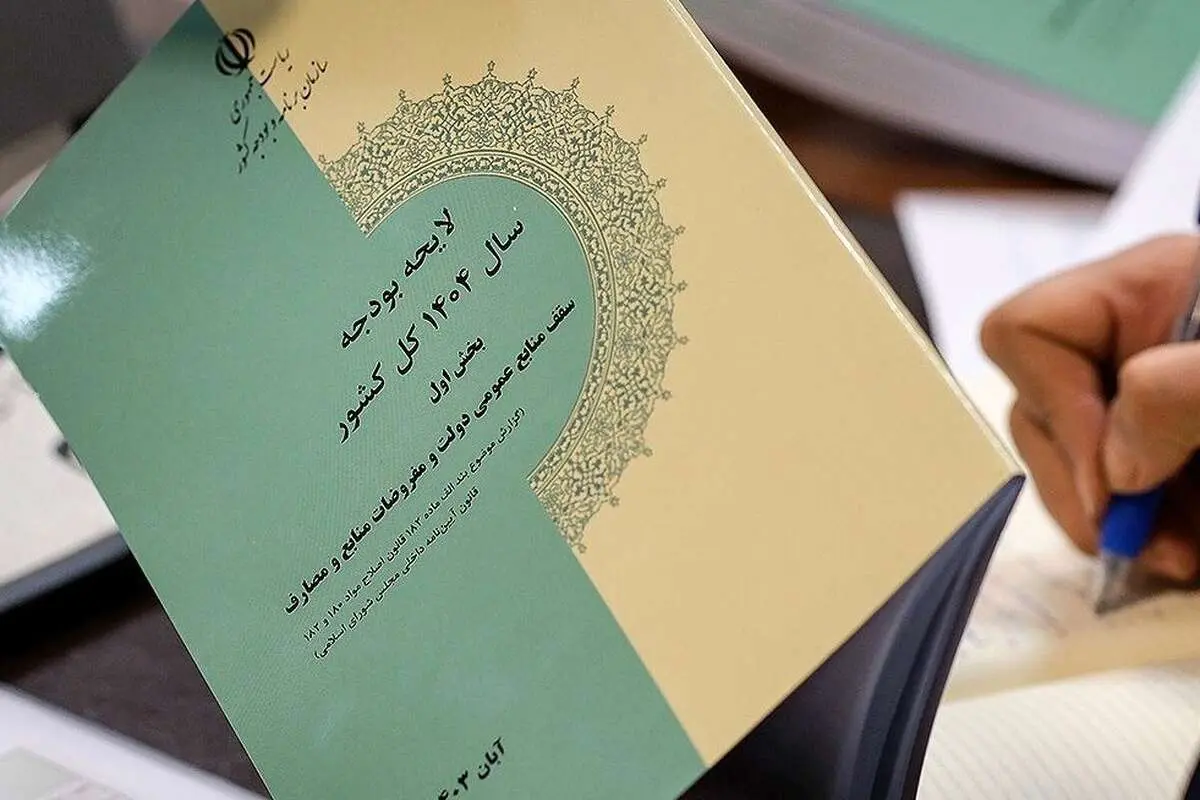 ریاست جمهوری
سازمان برنامه و بودجه کشور
لایحه بودجه
سال ۱۴۰۴ کل کشور
بخش اول
سقف منابع عمومی دولت و مفروضات منابع و مصارف
(گزارش موضوع بند الف ماده ۱۸۲ قانون اصلاح مواد ۱۸۰ و ۱۸۲
قانون آیین‌نامه داخلی مجلس شورای اسلامی)
آبان ۴۰۳